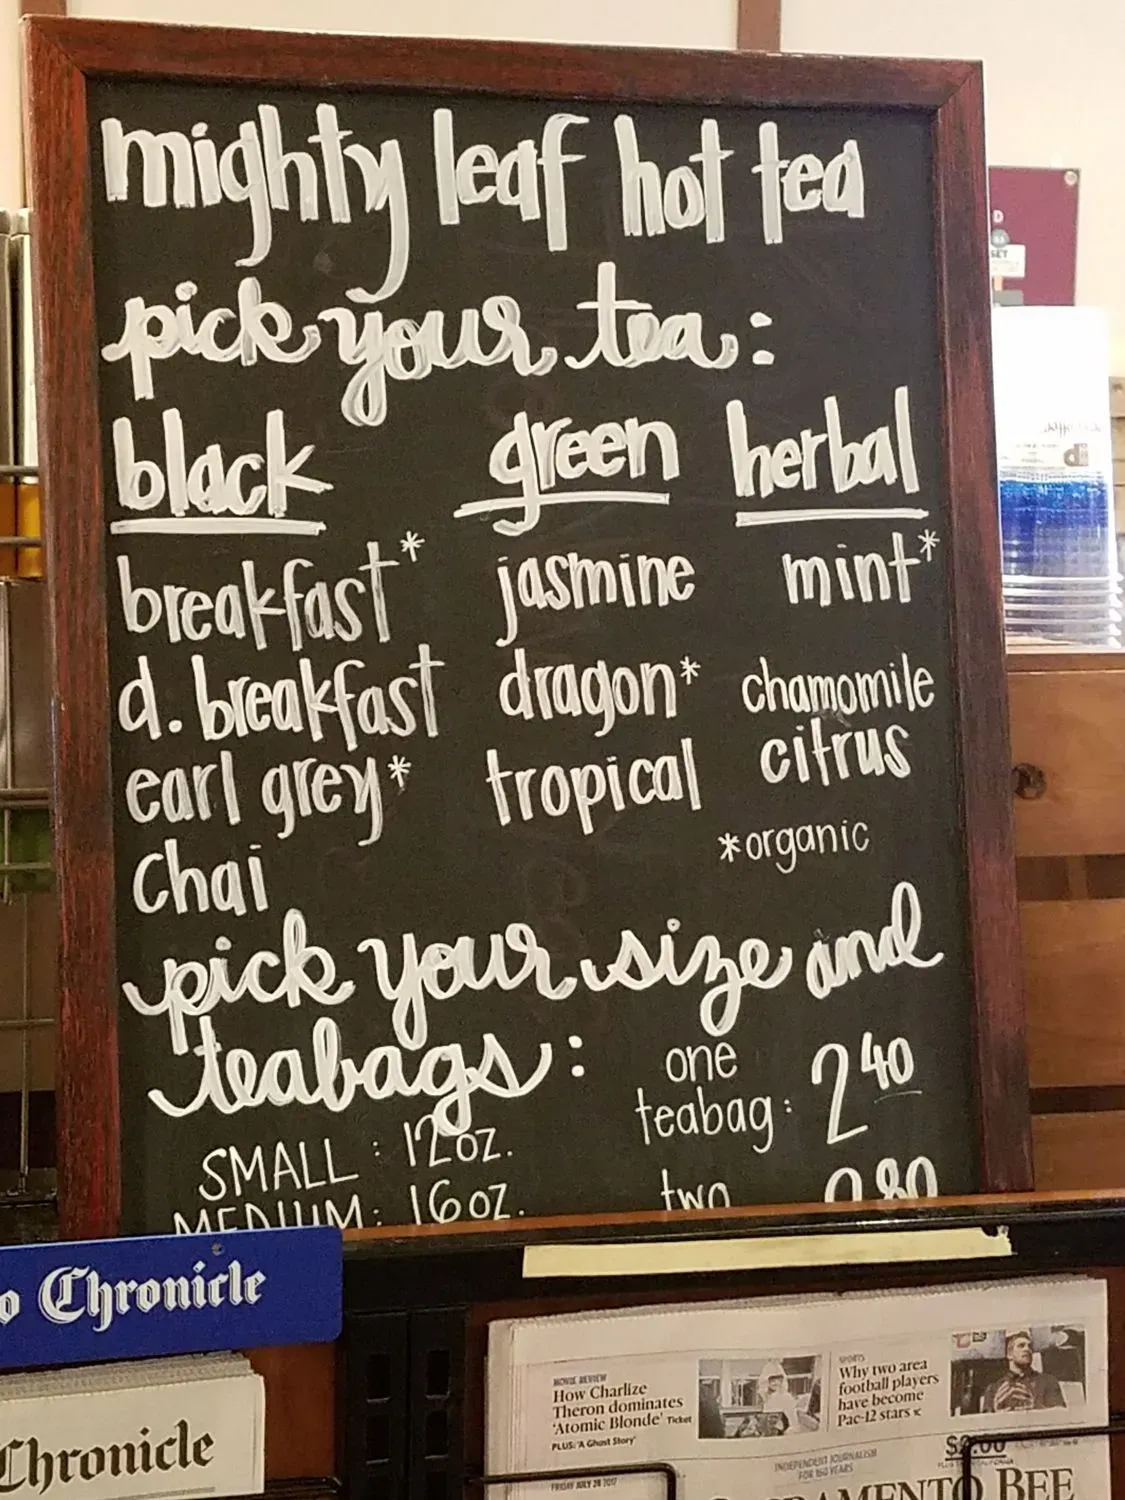 mighty leaf hot tea
pick your tea:
black green herbal
breakfast* jasmine mint*
d. breakfast dragon* chamomile
citrus
earl grey* tropical
*organic
Chai
pick your size and
teabags:
one
teabag: 2 40
SMALL : 12oz.
MEDIUM: 16oz. two 2.80
Chronicle
Chronicle
MOVIE REVIEW
How Charlize
Theron dominates
'Atomic Blonde' Ticket
PLUS: 'A Ghost Story'
SPORTS
Why two area
football players
have become
Pac-12 stars 1C
INDEPENDENT JOURNALISM
FOR 160 YEARS
$2.00
FRIDAY JULY 28 2017
SACRAMENTO BEE